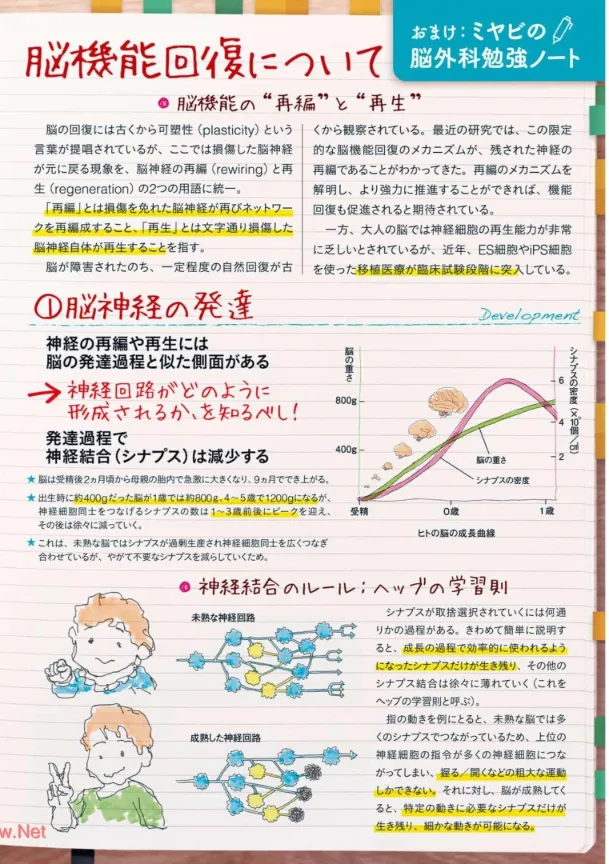 おまけ：ミヤビの
脳外科勉強ノート
脳機能回復について
脳機能の“再編”と“再生”
脳の回復には古くから可塑性（plasticity）という
言葉が提唱されているが、ここでは損傷した脳神経
が元に戻る現象を、脳神経の再編（rewiring）と再
生（regeneration）の2つの用語に統一。
「再編」とは損傷を免れた脳神経が再びネットワー
クを再編成すること、「再生」とは文字通り損傷した
脳神経自体が再生することを指す。
脳が障害されたのち、一定程度の自然回復が古
くから観察されている。最近の研究では、この限定
的な脳機能回復のメカニズムが、残された神経の
再編であることがわかってきた。再編のメカニズムを
解明し、より強力に推進することができれば、機能
回復も促進されると期待されている。
一方、大人の脳では神経細胞の再生能力が非常
に乏しいとされているが、近年、ES細胞やiPS細胞
を使った移植医療が臨床試験段階に突入している。
①脳神経の発達
Development
神経の再編や再生には
脳の発達過程と似た側面がある
→神経回路がどのように
形成されるか、を知るべし！
発達過程で
神経結合（シナプス）は減少する
★脳は受精後2ヵ月頃から母親の胎内で急激に大きくなり、9ヵ月でできあがる。
★出生時に約400gだった脳が1歳では約800g、4〜5歳で1200gになるが、
神経細胞同士をつなげるシナプスの数は1〜3歳前後にピークを迎え、
その後は徐々に減っていく。
★これは、未熟な脳ではシナプスが過剰生産され神経細胞同士を広くつなぎ
合わせているが、やがて不要なシナプスを減らしていくため。
脳の重さ
800g
400g
シナプスの密度（×10⁸個/㎣）
6
4
2
脳の重さ
シナプスの密度
受精
0歳
1歳
ヒトの脳の成長曲線
神経結合のルール；ヘッブの学習則
未熟な神経回路
成熟した神経回路
シナプスが取捨選択されていくには何通
りかの過程がある。きわめて簡単に説明す
ると、成長の過程で効率的に使われるよう
になったシナプスだけが生き残り、その他の
シナプス結合は徐々に薄れていく（これを
ヘッブの学習則と呼ぶ）。
指の動きを例にとると、未熟な脳では多
くのシナプスでつながっているため、上位の
神経細胞の指令が多くの神経細胞につな
がってしまい、握る／開くなどの粗大な運動
しかできない。それに対し、脳が成熟してく
ると、特定の動きに必要なシナプスだけが
生き残り、細かな動きが可能になる。
w.Net